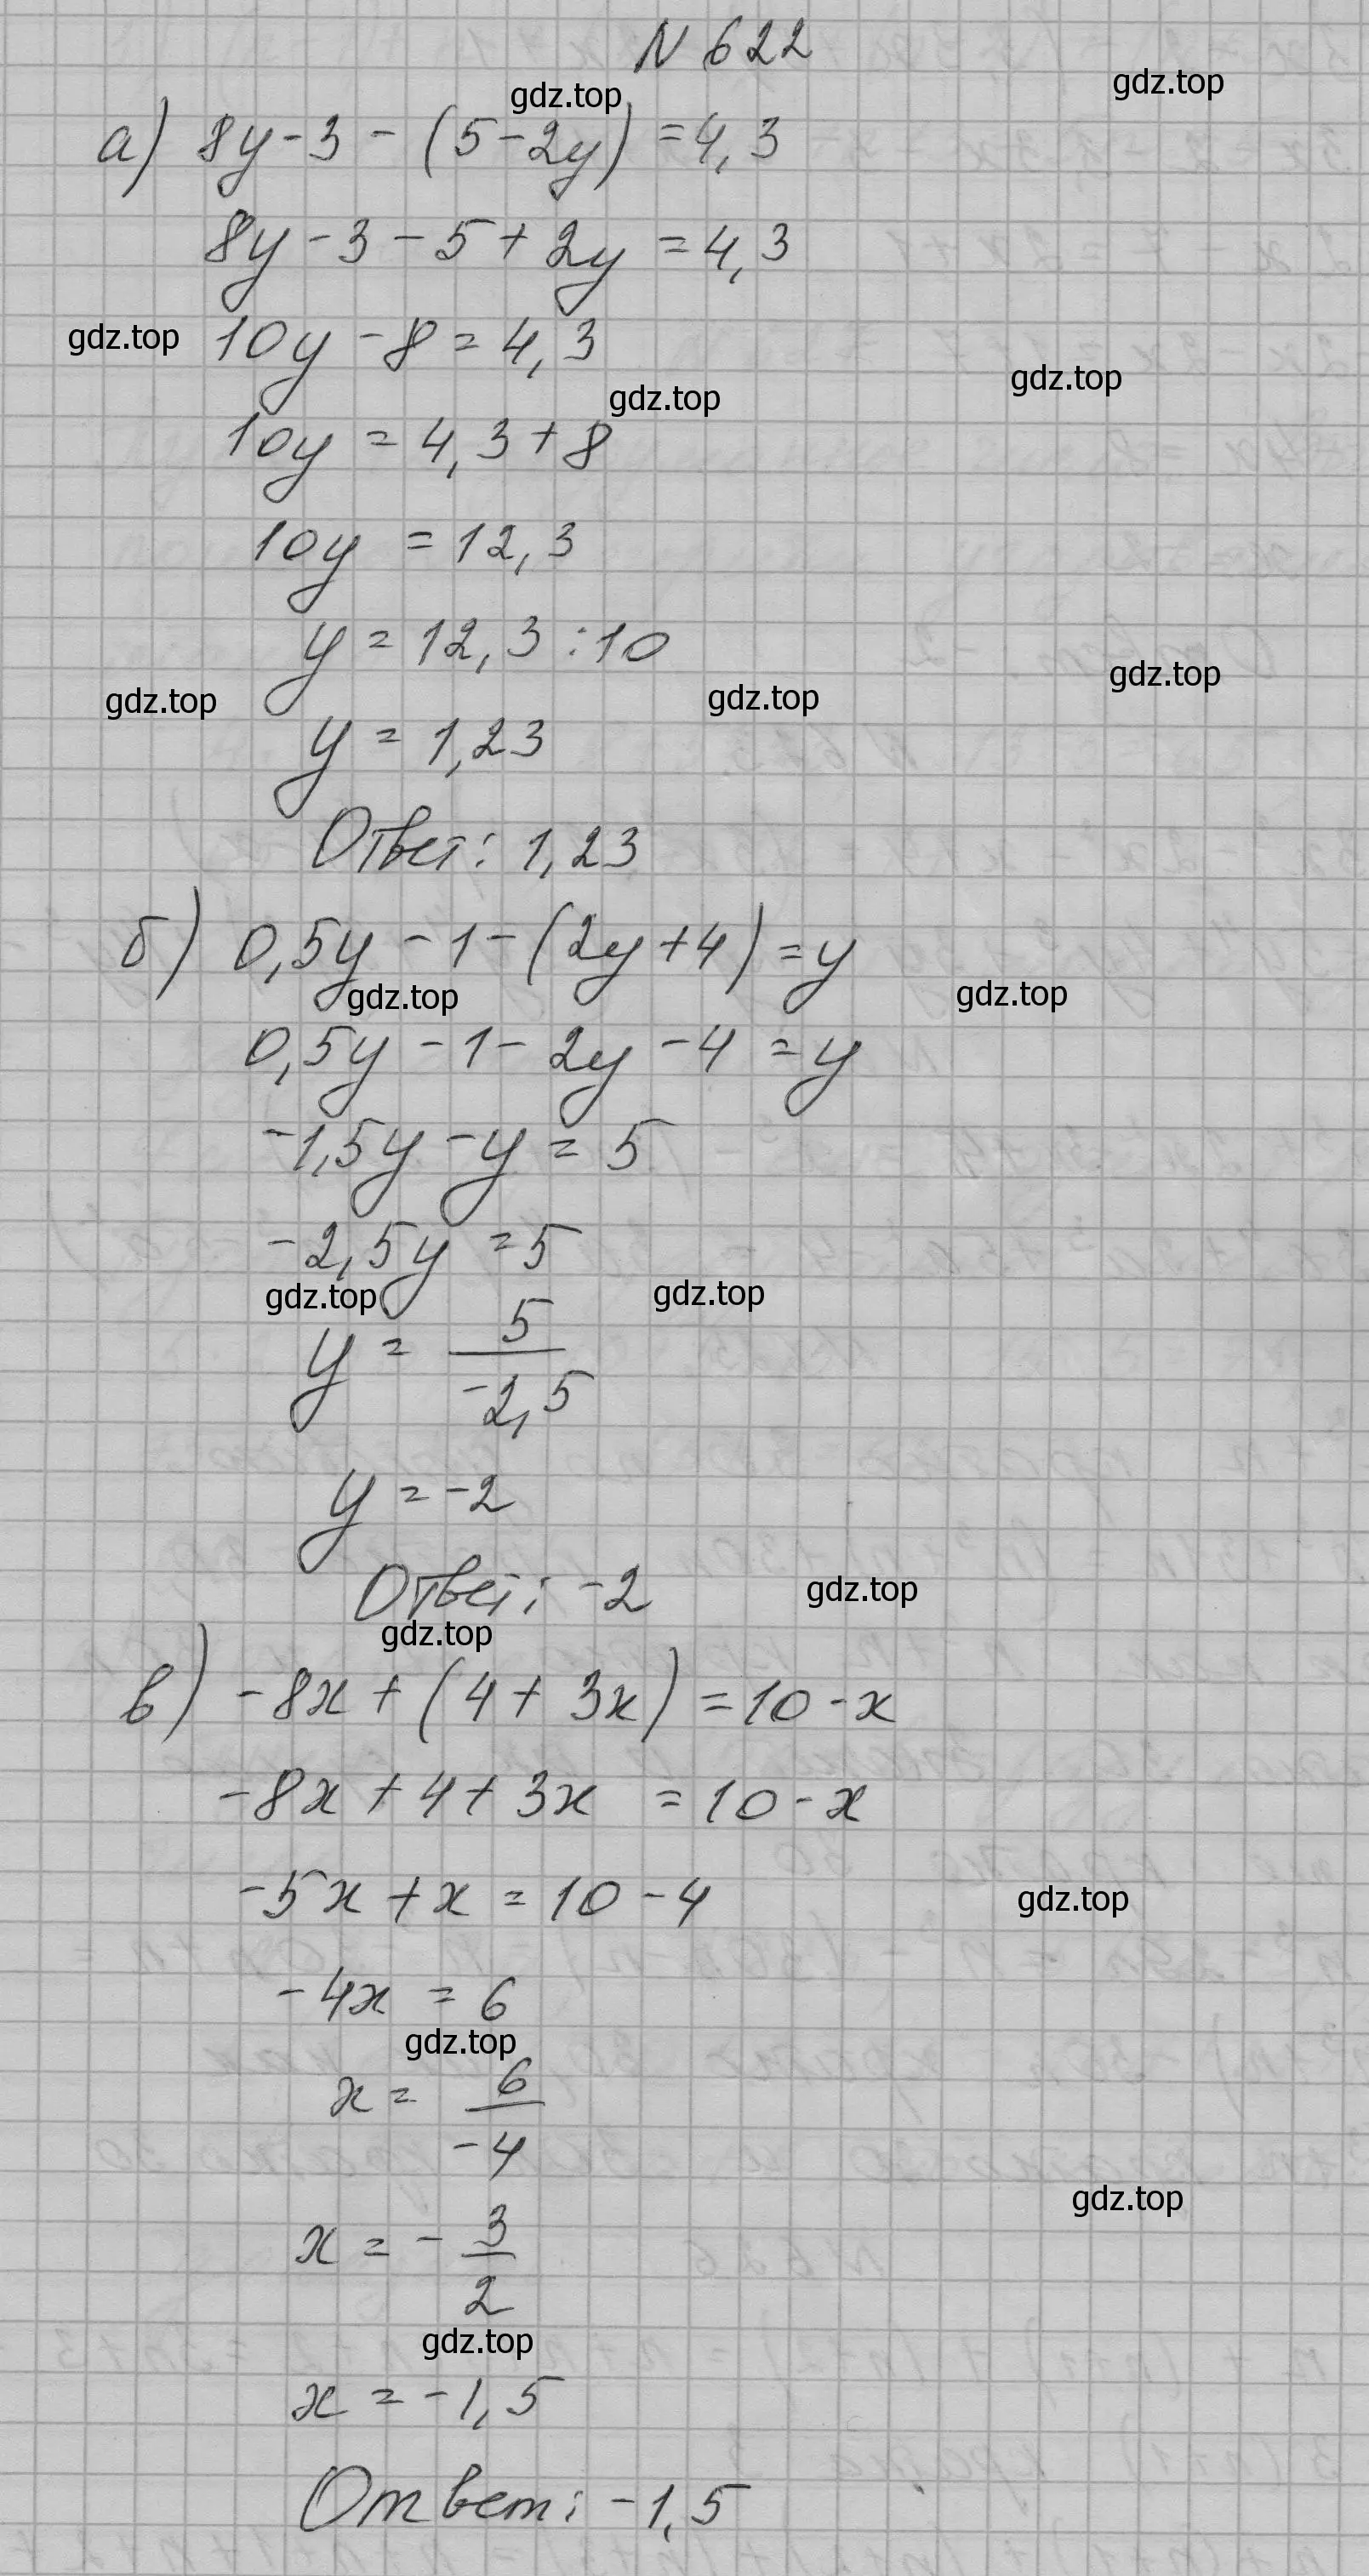 N 622
gdz.top
gdz.top
а) 8y-3-(5-2y)=4,3
8y-3-5+2y=4,3
gdz.top
10y-8=4,3
gdz.top
gdz.top
10y=4,3+8
10y=12,3
y=12,3:10
gdz.top
gdz.top
gdz.top
y=1,23
Ответ: 1,23
б) 0,5y-1-(2y+4)=y
gdz.top
gdz.top
0,5y-1-2y-4=y
-1,5y-y=5
-2,5y=5
gdz.top
gdz.top
y=5/-2,5
y=-2
Ответ: -2
gdz.top
gdz.top
в) -8x+(4+3x)=10-x
-8x+4+3x=10-x
-5x+x=10-4
gdz.top
-4x=6
gdz.top
x=6/-4
gdz.top
x=-3/2
gdz.top
x=-1,5
Ответ: -1,5